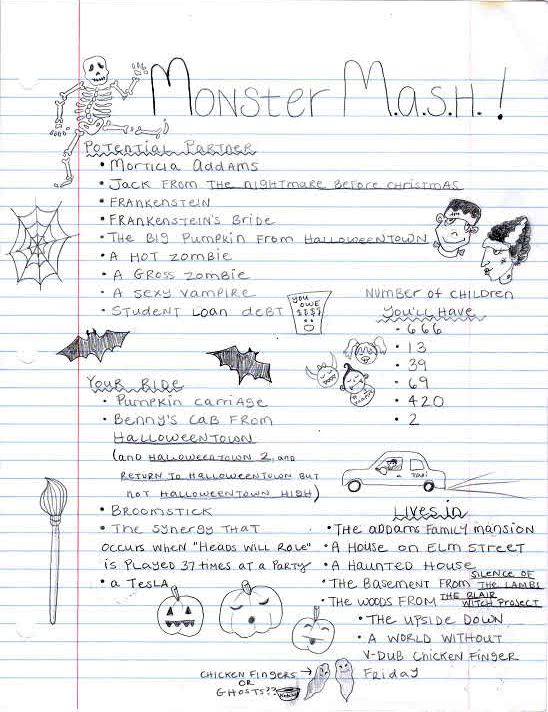 Monster M.A.S.H.!
Potential Partner
• Morticia Addams
• Jack from The Nightmare Before Christmas
• Frankenstein
• Frankenstein's Bride
• The Big Pumpkin from Halloweentown
• A Hot Zombie
• A Gross Zombie
• A Sexy Vampire
• Student Loan Debt
YOU OWE $$$$
Number of Children
You'll Have
• 666
• 13
• 39
• 69
• 420
• 2
Your Ride
• Pumpkin Carriage
• Benny's Cab from
Halloweentown
(and Halloweentown 2, and
Return to Halloweentown but
not Halloweentown High)
• Broomstick
• The Synergy That
occurs when "Heads Will Role"
is played 37 times at a party
• a Tesla
Taxi
Lives in
• The Addams Family Mansion
• A House on Elm Street
• A Haunted House
• The Basement from Silence of
The Lambs
• The Woods from The Blair
Witch Project
• The Upside Down
• A World Without
V-Dub Chicken Finger
Friday
Chicken Fingers →
or
Ghosts??